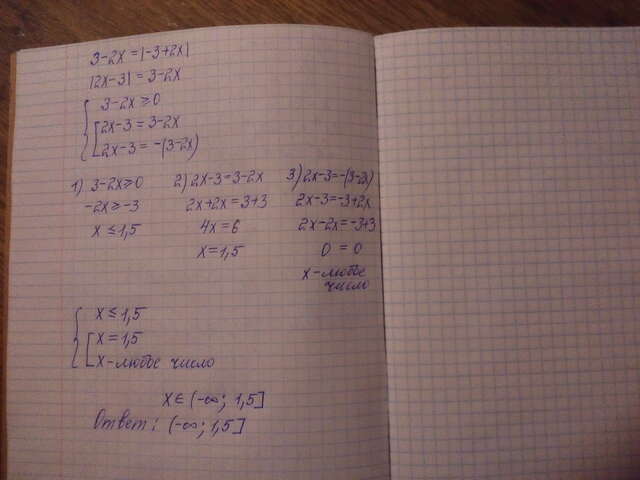 3-2x = |-3+2x|
|2x-3| = 3-2x
3-2x ≥ 0
2x-3 = 3-2x
2x-3 = -(3-2x)
1) 3-2x ≥ 0
-2x ≥ -3
x ≤ 1,5
2) 2x-3 = 3-2x
2x+2x = 3+3
4x = 6
x = 1,5
3) 2x-3 = -(3-2x)
2x-3 = -3+2x
2x-2x = -3+3
0 = 0
x - любое
число
x ≤ 1,5
x = 1,5
x - любое число
x ∈ (-∞; 1,5]
Ответ: (-∞; 1,5]